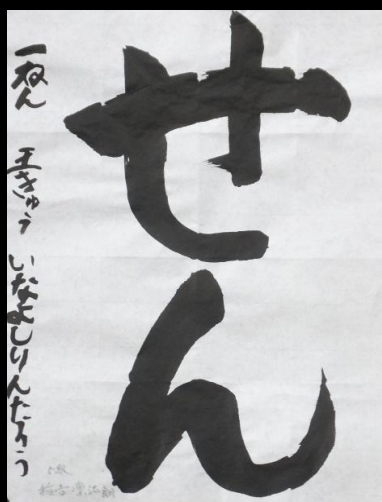 せん
一ねん 五きゅう いなよしりんたろう